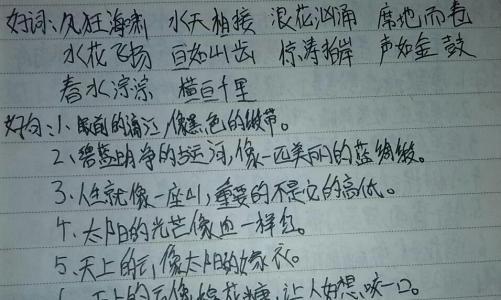 好词:风狂海啸 水天相接 浪花汹涌 席地而卷
水花飞扬 惊涛拍岸 声如金鼓
春水淙淙 横亘千里
好句:1、眼前的漓江,像黑色的缎带。
2、碧蓝明净的大运河,像一匹美丽的蓝绸缎。
3、人生就像一座山,重要的不是它的高低。
4、太阳的光芒像血一样红。
5、天上的云,像太阳的嫁衣。
6、天上的云像棉花糖,让人好想咬一口。